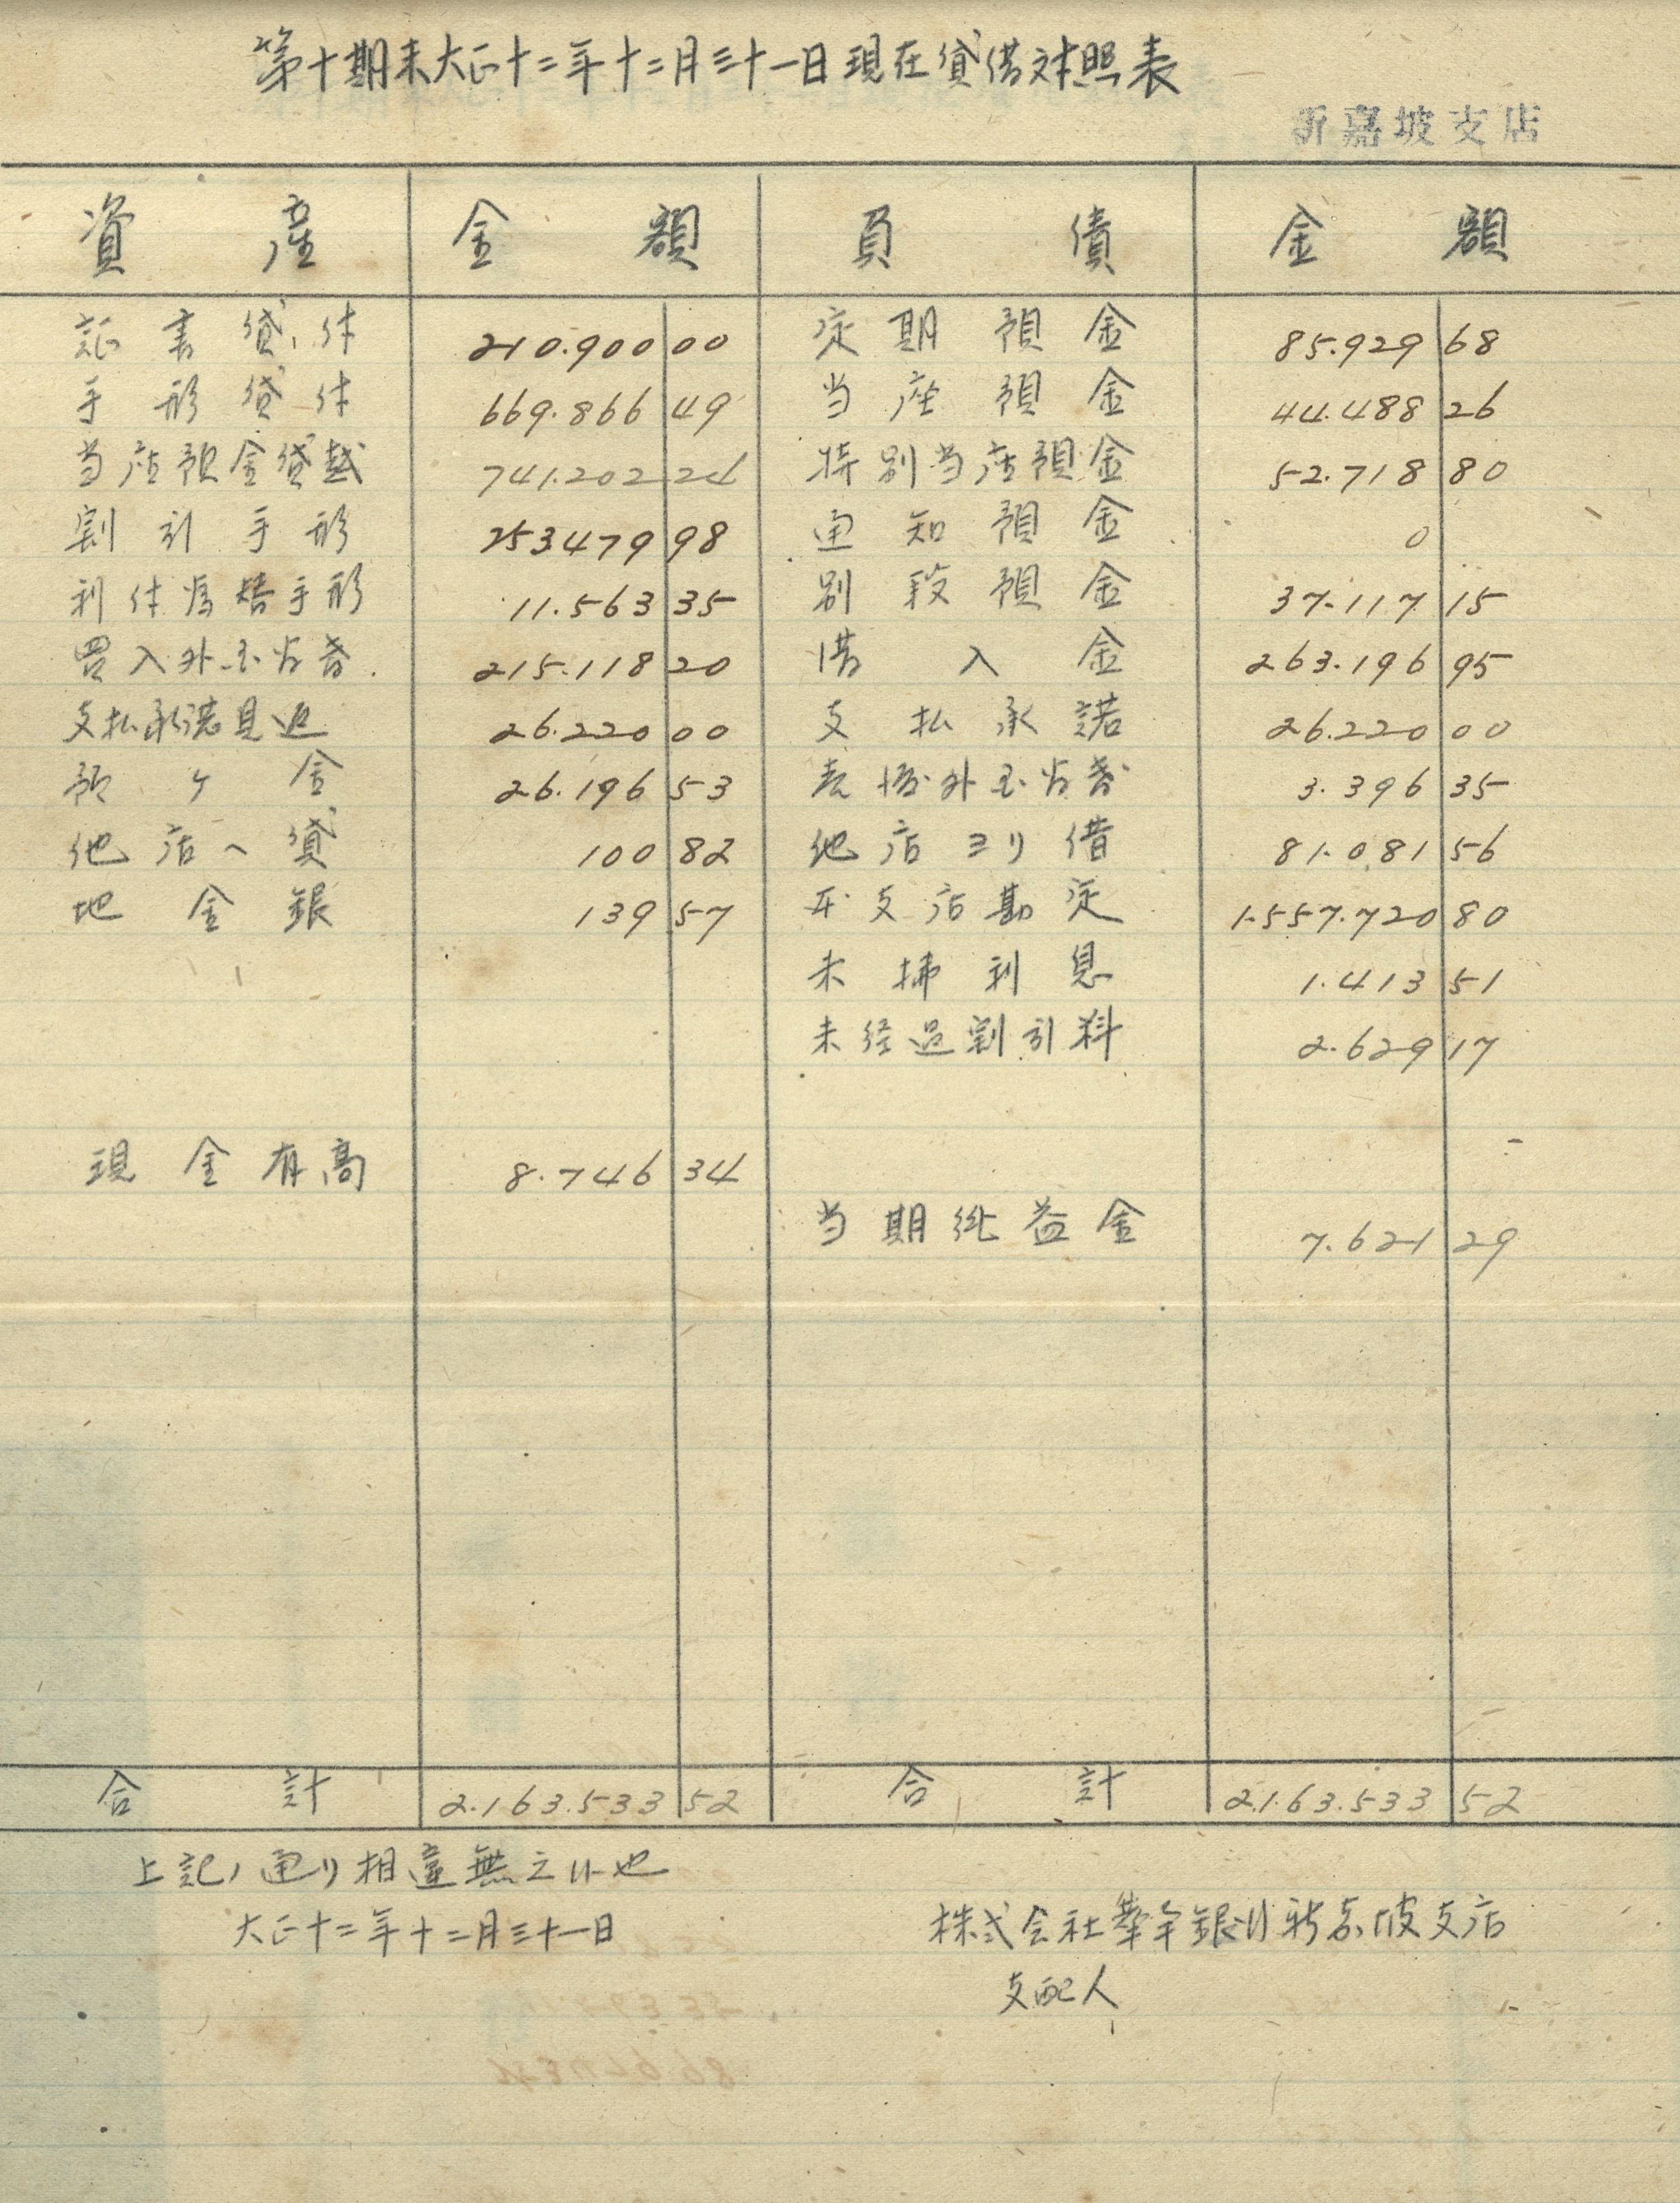 第十期末大正十二年十二月三十一日現在貸借対照表
新嘉坡支店
資産 金額 負債 金額
証書貸付 210.900 00 定期預金 85.929 68
手形貸付 669.866 49 当座預金 44.488 26
当座預金貸越 741.202 24 特別当座預金 52.718 80
割引手形 253479 98 通知預金 0
利付為替手形 11.563 35 別段預金 37.117 15
買入外国為替 215.118 20 借入金 263.196 95
支払承諾見返 26.220 00 支払承諾 26.220 00
預ケ金 26.196 53 売渡外国為替 3.396 35
他店へ貸 100 82 他店ヨリ借 81.081 56
地金銀 139 57 本支店勘定 1.557.720 80
未払利息 1.413 51
未経過割引料 2.629 17
現金有高 8.746 34
当期純益金 7.621 29
合計 2.163.533 52 合計 2.163.533 52
上記ノ通リ相違無之候也
大正十二年十二月三十一日
株式会社華南銀行新嘉坡支店
支配人